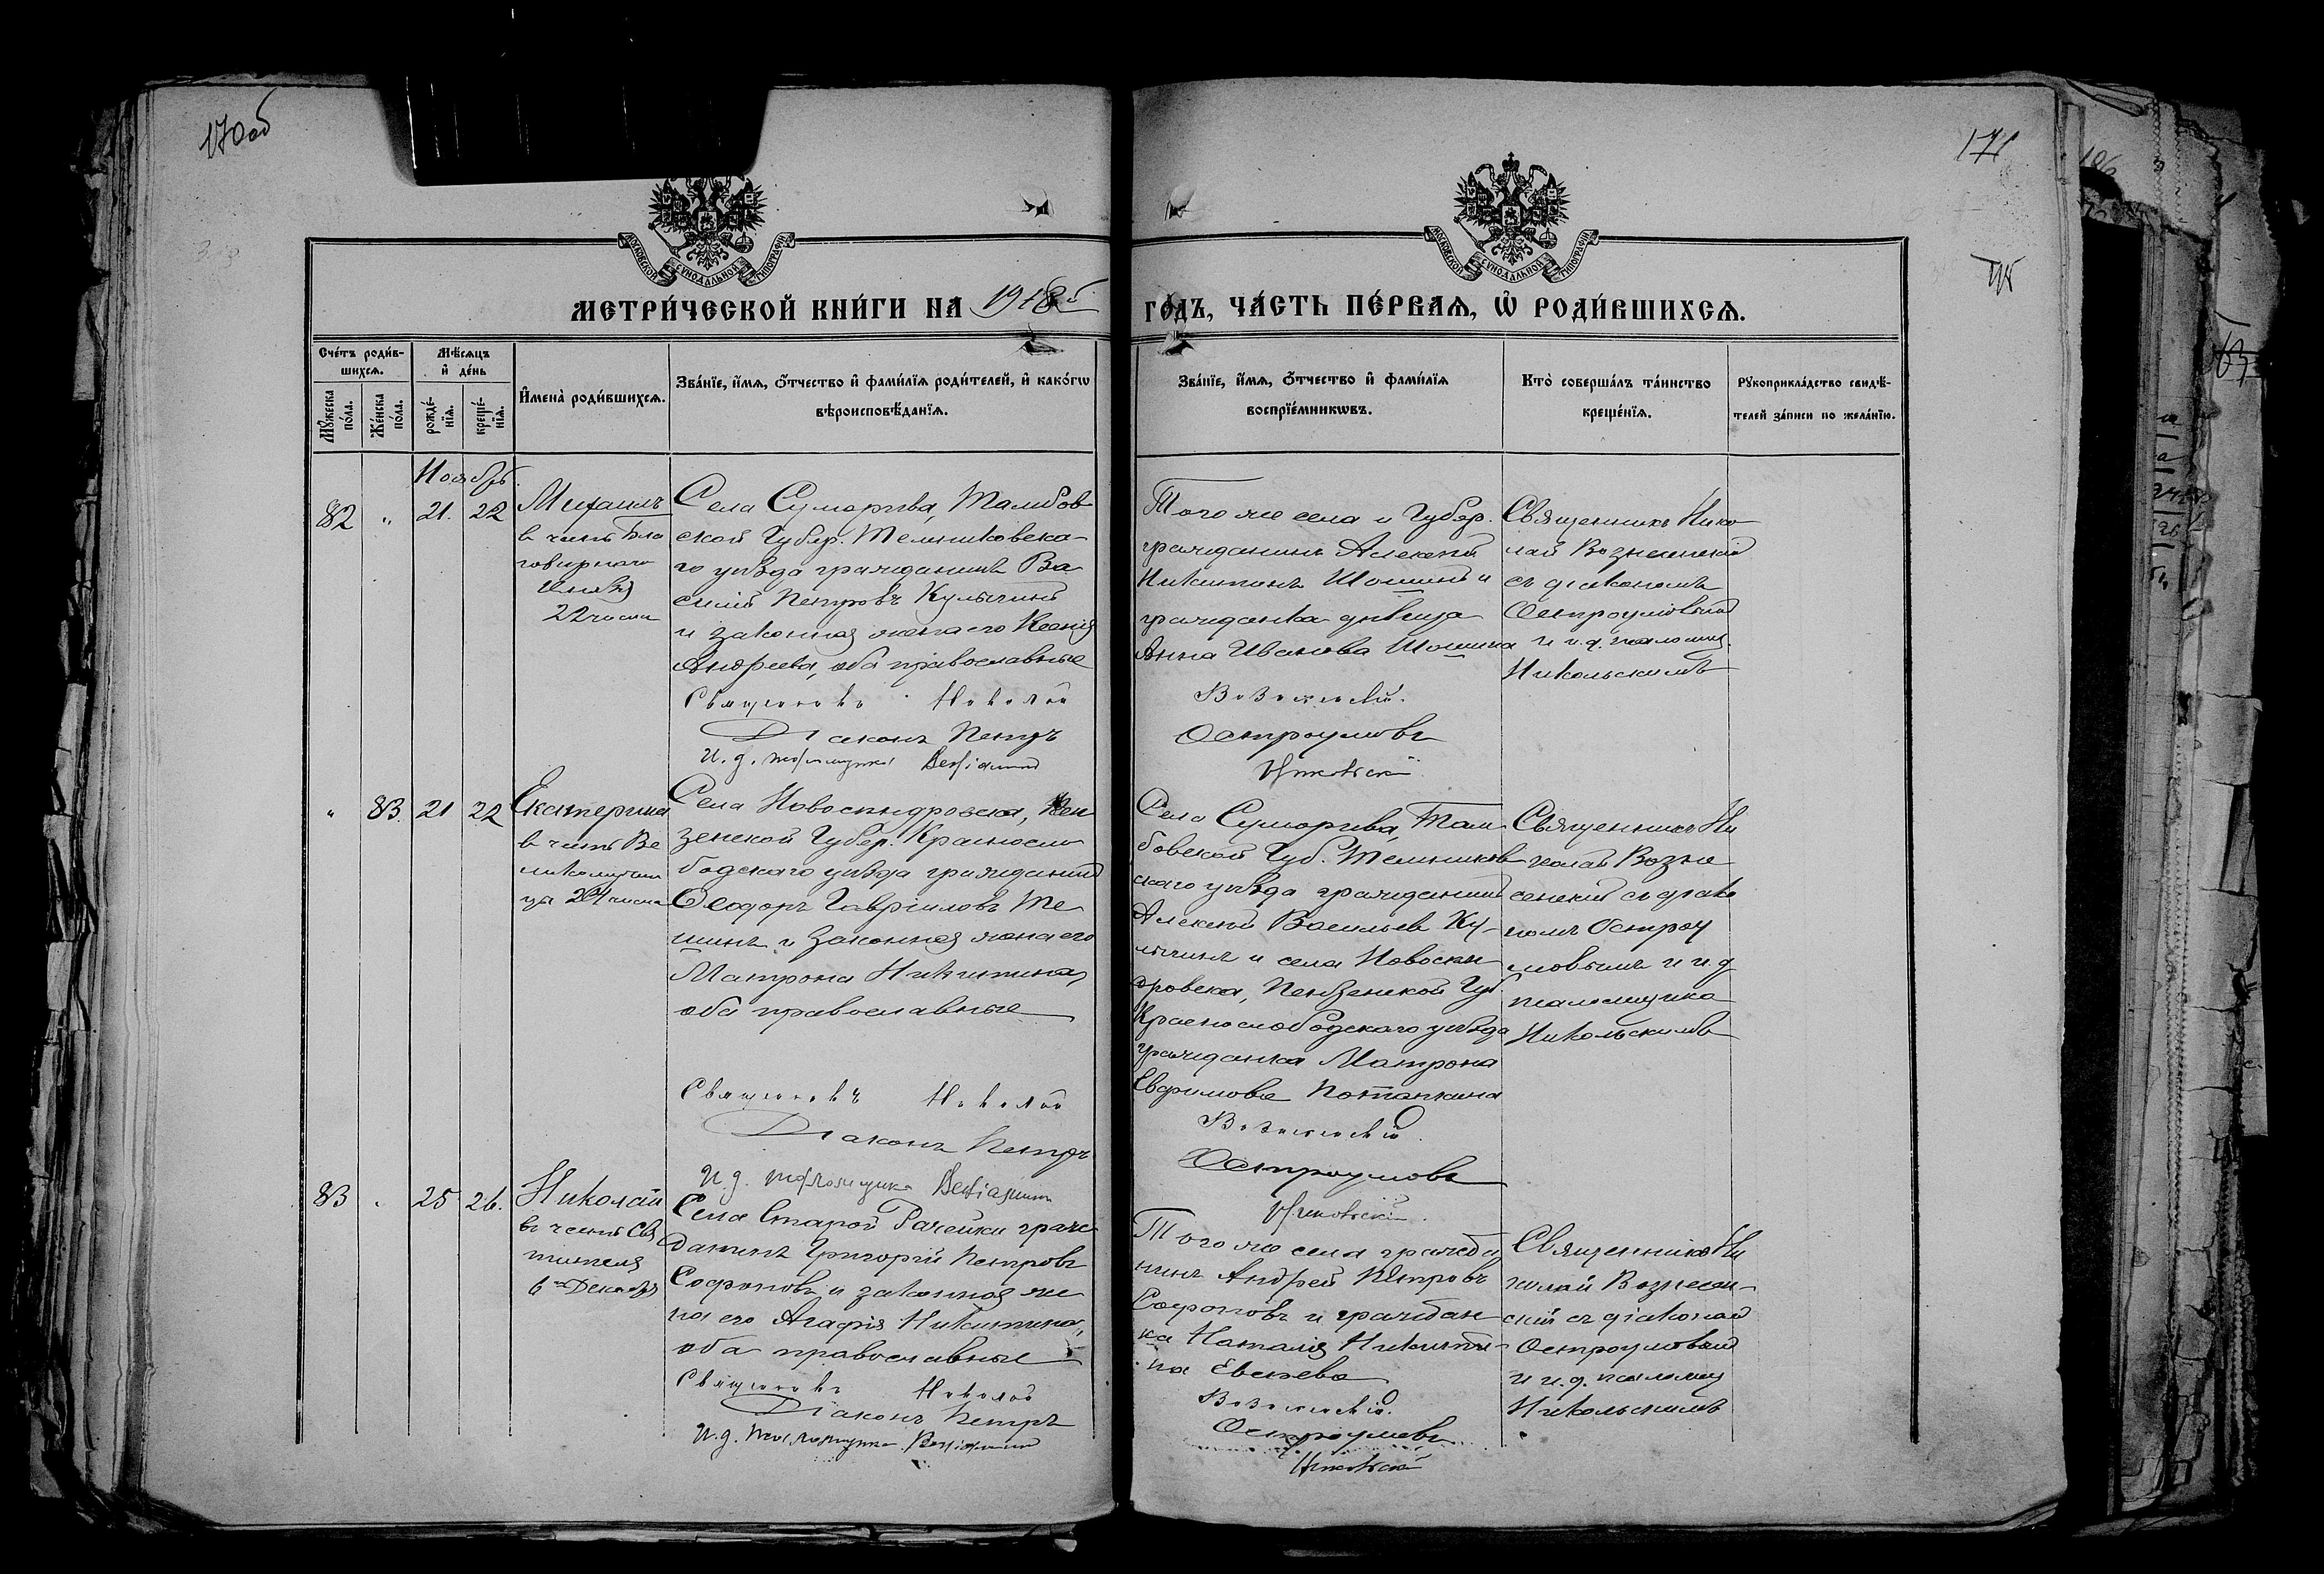 170об
171
МОСКОВСКОЙ СУНОДАЛЬНОЙ ТИПОГРАФІИ
МОСКОВСКОЙ СУНОДАЛЬНОЙ ТИПОГРАФІИ
МЕТРИ́ЧЕСКОЙ КНИ́ГИ НА 1918й
ГО́ДЪ, ЧА́СТЬ ПЕ́РВАѦ, Ѡ҆ РОДИ́ВШИХСѦ.
Сче́тъ роди́в-
шихсѧ.
Мѣ́сѧцъ
и҆ де́нь
Мꙋ́жеска
по́ла.
Же́нска
по́ла.
рожде́-
нїѧ.
креще́-
нїѧ.
И҆мена̀ роди́вшихсѧ.
Зва́нїе, и҆́мѧ, ѻ҆́тчество и҆ фами́лїѧ роди́телей, и҆ како́гѡ
вѣроисповѣ́данїѧ.
Зва́нїе, и҆́мѧ, ѻ҆́тчество и҆ фами́лїѧ
воспрїе́мникѡвъ.
Кто̀ соверша́лъ та́инство
креще́нїѧ.
Рꙋкоприкла́дство свидѣ́-
телей за́писи по жела́нїю.
Ноябрь.
82 " 21. 22
Михаилъ
в честь Бла
говѣрнаго
Князя
22 числа
Села Суморьева, Тамбов
ской Губер. Темниковска-
го уѣзда гражданинъ Ва
силій Петровъ Кулыгинъ
и законная жена его Ксенія
Андреева, оба православные
Священникъ Николай
Діаконъ Петръ
И. д. псаломщика Веніаминъ
Того же села и Губер.
гражданинъ Алексѣй
Никитинъ Шошинъ и
гражданка дѣвица
Анна Иванова Шошина
Вознесенскій.
Остроумовъ
Никольскій
Священникъ Нико
лай Вознесенскій
съ діакономъ
Остроумовымъ
и и. д. псаломщ.
Никольскимъ
" 83. 21 22
Екатерина
в честь Ве
ликомучени
цы 24 числа
Села Новосиндровска, Пен
зенской Губер. Краснослo
бодскаго уѣзда гражданинъ
Ѳеодоръ Гавріиловъ Те
шинъ и законная жена его
Матрона Никитина,
оба православные
Священникъ Николай
Діаконъ Петръ
И. д. псаломщика Веніаминъ
Села Суморьева, Там
бовской Губ. Темников
скаго уѣзда гражданинъ
Алексѣй Васильев Ку-
лыгинъ и села Новосин
дровска, Пензенской Губ.
Краснослободскаго уѣзда
гражданка Матрона
Евфимова Потапкина
Вознесенскій.
Остроумовъ
Никольскій.
Священникъ Ни
колай Возне
сенскій съ діако
номъ Остроу
мовымъ и и. д
псаломщика
Никольскимъ
83 " 25 26.
Николай
въ честь Свя
тителя
6го Декабря
Села Старой Рачейки граж
данинъ Григорій Петровъ
Софоновъ и законная же
на его Агафія Никитина,
оба православные
Священникъ Николай
Діаконъ Петръ
И. д. псаломщика Веніаминъ
Того же села гражда
нинъ Андрей Петровъ
Софоновъ и граждан
ка Наталія Никити-
на Евсѣева
Вознесенскій.
Остроумовъ
Никольскій
Священникъ Ни
колай Вознесен-
скій съ діакономъ
Остроумовымъ
и и. д. псаломщ
Никольскимъ